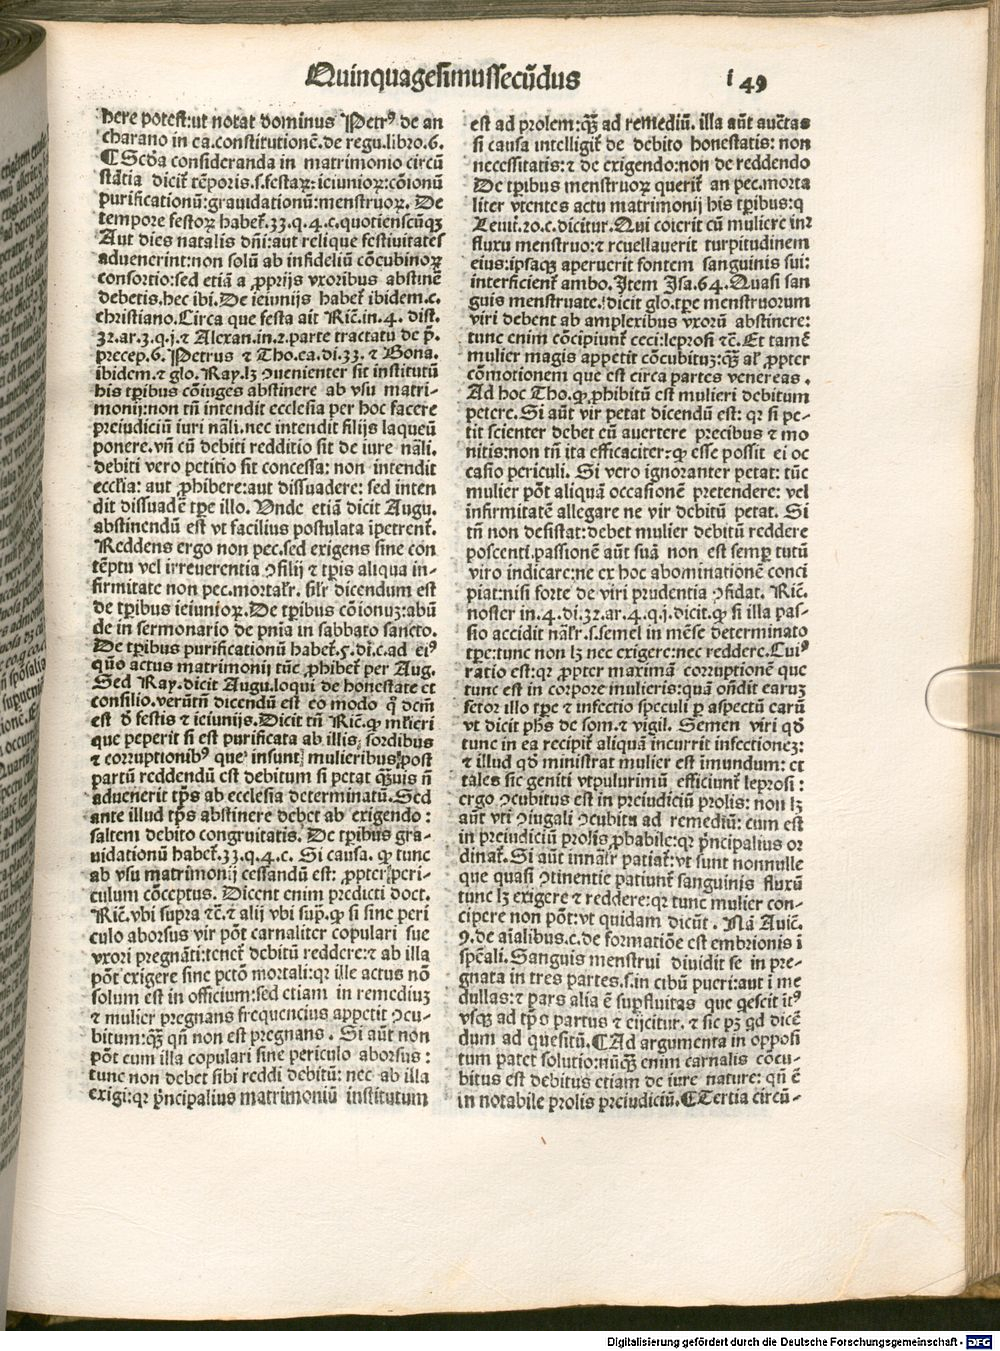 Quinquagesimussecũdus
i 49
bere potest:ut notat dominus Petrꝰ de an
charano in ca.constitutionẽ.de regu.libro.6.
¶Scďa consideranda in matrimonio circũ
stãtia dicit᷑ tẽporis.s.festaꝝ:ieiunioꝝ:cõionũ
purificationũ:grauidationũ:menstruoꝝ. De
tempore festoꝝ habet᷑.33.q.4.c.quotienscũqꝫ
Aut dies natalis dñi:aut relique festiuitates
aduenerint:non solũ ab infideliũ cõcubinoꝝ
consortio:sed etiã a ꝓprijs vxoribus abstinẽ
debetis.hec ibi. De ieiunijs habet᷑ ibidem.c.
christiano.Circa que festa ait Ric̃.in.4. dist.
32.ar.3.q.i.⁊ Alexan.in.2.parte tractatu de p̃.
precep.6. Petrus ⁊ Tho.ea.di.33. ⁊ Bona.
ibidem.⁊ glo.Ray.lꝫ ꝯuenienter sit institutũ
his tꝑibus cõiuges abstinere ab vsu matri-
monij:non tñ intendit ecclesia per hoc facere
preiudiciũ iuri nãli.nec intendit filijs laqueũ
ponere.vñ cũ debiti redditio sit de iure nãli.
debiti vero petitio sit concessa: non intendit
ecclĩa: aut ꝓhibere:aut dissuadere: sed inten
dit dissuadẽ tꝑe illo. Vnde etiã dicit Augu.
abstinendũ est vt facilius postulata ĩpetrent᷑.
Reddens ergo non pec.sed exigens sine con
tẽptu vel irreuerentia ꝯsilij ⁊ tꝑis aliqua in-
firmitate non pec.mortalr̃. sil̃r dicendum est
de tꝑibus ieiunioꝝ. De tꝑibus cõionuꝫ:abũ
de in sermonario de pnia in sabbato sancto.
De tꝑibus purificationũ habet᷑.5.di.c.ad eiꝰ
qũo actus matrimonij tũc ꝓhibet᷑ per Aug.
Sed Ray.dicit Augu.loqui de honestate et
consilio.verũtñ dicendũ est eo modo q̃ dcm̃
est ď festis ⁊ ieiunijs. Dicit tñ Ric̃.ꝙ mlieri
que peperit si est purificata ab illis sordibus
⁊ corruptionibꝰ que insunt mulieribus post
partũ reddendũ est debitum si petat qꝫuis ñ
aduenerit tp̃s ab ecclesia determinatũ.Sed
ante illud tp̃s abstinere debet ab exigendo:
saltem debito congruitatis. De tꝑibus gra-
uidationũ habet᷑.33.q.4.c. Si causa. ꝙ tunc
ab vsu matrimonij cessandũ est: ꝓpter peri-
culum cõceptus. Dicent enim predicti doct.
Ric̃.vbi supra ⁊c̃.⁊ alij vbi sup̃.ꝙ si sine peri
culo aborsus vir põt carnaliter copulari sue
vxori pregnãti:tenet᷑ debitũ reddere:⁊ ab illa
põt exigere sine pctõ mortali:qr ille actus nõ
solum est in officium:sed etiam in remediuꝫ
⁊ mulier pregnans frequencius appetit ꝯcu-
bitum:qꝫ qñ non est pregnans. Si aũt non
põt cum illa copulari sine periculo aborsus:
tunc non debet sibi reddi debitũ: nec ab illa
exigi:qr p̃ncipalius matrimoniũ institutum
est ad prolem:qꝫ ad remediũ. illa aũt auctas
si causa intelligit᷑ de debito honestatis: non
necessitatis: ⁊ de exigendo:non de reddendo
De tꝑibus menstruoꝝ querit᷑ an pec.morta
liter vtentes actu matrimonij his tꝑibus:q
Leuit᷑.20.c.dicitur.Qui coierit cũ muliere in
fluxu menstruo:⁊ reuelauerit turpitudinem
eius:ipsaqꝫ aperuerit fontem sanguinis sui:
interficient᷑ ambo. Item Isa.64.Quasi san
guis menstruate.! dicit glo.tꝑe menstruorum
viri debent ab amplexibus vxorũ abstinere:
tunc enim cõcipiunt᷑ ceci:leprosi ⁊c̃. Et tamẽ
mulier magis appetit cõcubituꝫ:qꝫ al ꝓpter
cõmotionem que est circa partes venereas.
Ad hoc Tho.ꝙ ꝓhibitũ est mulieri debitum
petere. Si aũt vir petat dicendũ est: qr si pe-
tit scienter debet eũ auertere precibus ⁊ mo
nitis:non tñ ita efficaciter:ꝙ esse possit ei oc
casio periculi. Si vero ignoranter petat: tũc
mulier põt aliquã occasionẽ pretendere: vel
infirmitatẽ allegare ne vir debitũ petat. Si
tñ non desistat:debet mulier debitũ reddere
poscenti.passionẽ aũt suã non est semꝑ tutũ
viro indicare:ne ex hoc abominationẽ conci
piat:nisi forte de viri prudentia ꝯfidat. Ric̃.
noster in.4.di.32.ar.4.q.i.dicit.ꝙ si illa pas-
sio accidit nãlr̃.s.semel in mẽse determinato
tꝑe:tunc non lꝫ nec exigere:nec reddere.Cuiꝰ
ratio est:qr ꝓpter maximã corruptionẽ que
tunc est in corpore mulieris:quã oñdit earuꝫ
fetor illo tꝑe ⁊ infectio speculi ꝑ aspectũ earũ
vt dicit phs̃ de som.⁊ vigil. Semen viri qď
tunc in ea recipit᷑ aliquã incurrit infectionẽꝫ:
⁊ illud qď ministrat mulier est imundum: et
tales sic geniti vtpulurimũ efficiunt᷑ leprosi:
ergo ꝯcubitus est in preiudiciũ prolis: non lꝫ
aũt vti ꝯiugali ꝯcubitu ad remediũ: cum est
in preiudiciũ prolis ꝓbabile:qr p̃ncipalius or
dinat᷑. Si aũt innãlr̃ patiat᷑:vt sunt nonnulle
que quasi ꝯtinentie patiunt᷑ sanguinis fluxũ
tunc lꝫ exigere ⁊ reddere:qr tunc mulier con-
cipere non põt:vt quidam dicũt. Nã Auic̃.
9.de aĩalibus.c.de formatiõe est embrionis ĩ
spẽali. Sanguis menstrui diuidit se in pre-
gnata in tres partes.s.in cibũ pueri:aut ĩ me
dullas:⁊ pars alia ẽ suꝑfluitas que qescit ĩtꝰ
vsqꝫ ad tp̃o partus ⁊ eijcitur. ⁊ sic pꝫ qd dicẽ
dum ad quesitũ.¶Ad argumenta in opposi
tum patet solutio:nũqꝫ enim carnalis cõcu-
bitus est debitus etiam de iure nature: qñ ẽ
in notabile prolis preiudiciũ.¶Tertia circũ-
Digitalisierung gefördert durch die Deutsche Forschungsgemeinschaft - DFG